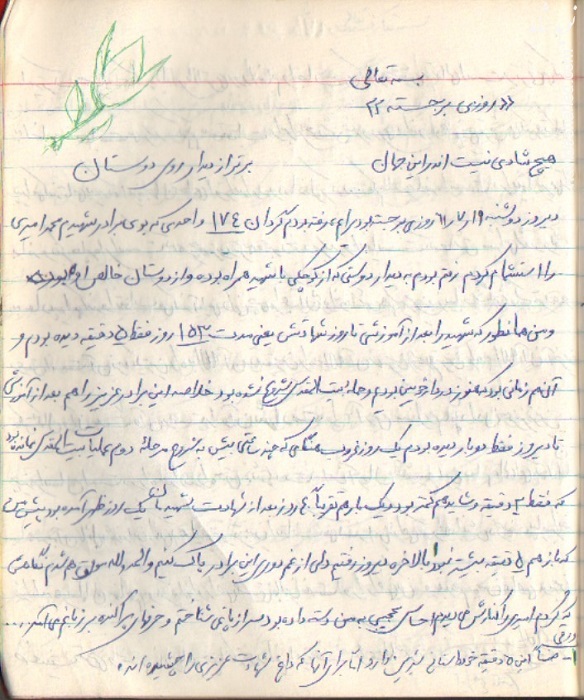 بسمه تعالی
«روزی برجسته ۲۲
هیچ شادی نیست اندر این جهان برتر از دیدار روی دوستان
دیروز دوشنبه ۱۹/۷/۶۱ روزی برجسته بود برایم رفته بودم گردان ۱۷۴ واحدی که بوی برادر شهیدم محمد امیری
را استشمام کردم رفتم بودم به دیدار دوستی که از کوچکی با شهید همراه بوده و از دوستان خالص او بود
ومن همانطور که شهید را بعد از آموزشی تا روز شهادتش یعنی مدت ۱۵۳ روز فقط ۵ دقیقه دیده بودم و
آن هم زمانی بود که هنوز در دارخوین بودم و حمله بیت المقدس شروع نشده بود خلاصه این برادر عزیز را هم بعد از آموزشی
تا دیروز فقط دوبار دیده بودم یک روز غروب هنگامی که چند ساعتی بیش به شروع مرحله دوم عملیات بیت المقدس نمانده بود
که فقط ۳ دقیقه و شاید هم کمتر بود و یک بار هم تقریباً ۴۰ روز بعد از شهادت شهید یک روز ظهر آمده بود پیش من
که باز هم ۵ دقیقه بیشتر نبود بالاخره دیروز رفتم دلی از غم دوری این برادر پاک کنیم و الحمدالله موفق هم شدم نگاهش
که کردم اسدی در کنارش میدیدم احساس عجیبی به من دست داده بود سر از پای نشناختم و حرفهای پراکنده بر زبانم می آمد ....
۱- ضمناً این ۵ دقیقه خود داستانی شیرین دارد اما برای آنها که داغ شهادت عزیزی را چشیده اند